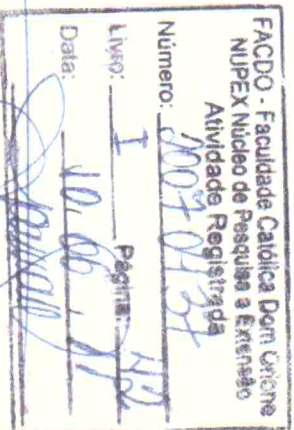 FACDO - Faculdade Católica Dom Orione
NUPEX Núcleo de Pesquisa e Extensão
Atividade Registrada
Número:
Livro: I Página: 42
Data: 10. 06